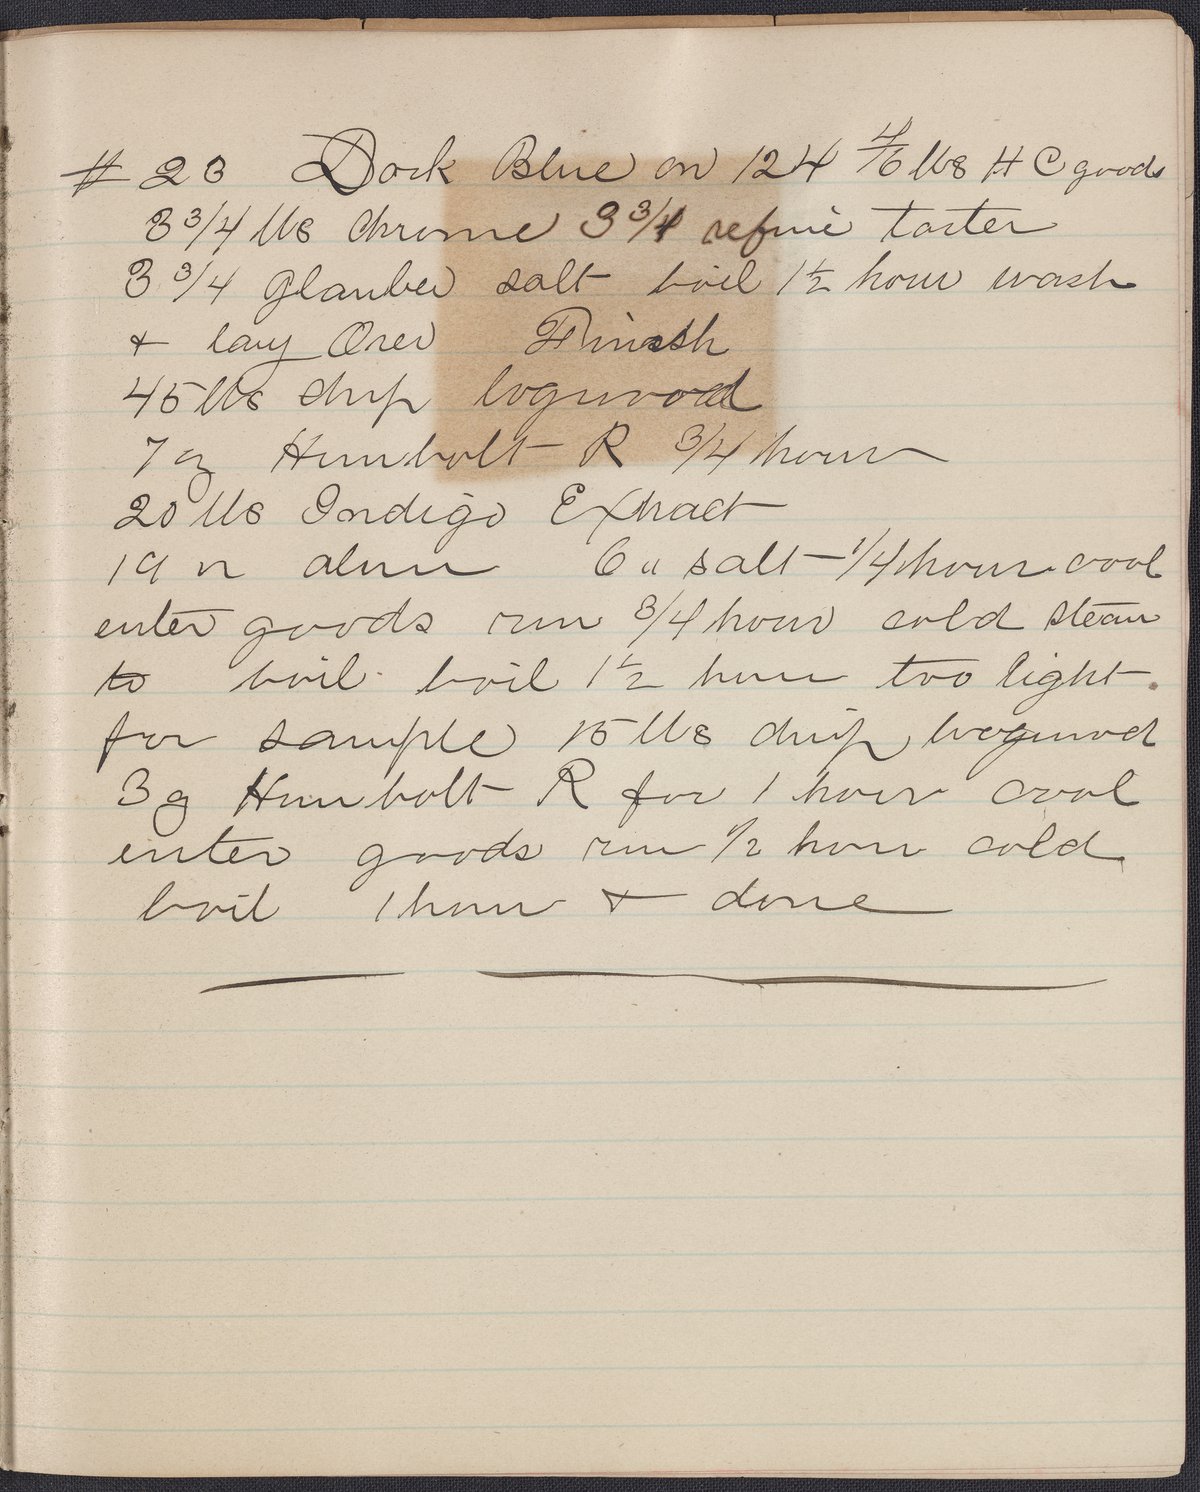 # 23 Dark Blue on 124 4/6 lbs H C goods
3 3/4 lbs Chrome 3 3/4 refine tarter
3 3/4 glauber salt boil 1 1/2 hour wash
& lay Over Finish
45 lbs chip logwood
7 oz Humbolt R 3/4 hour
20 lbs Indigo Extract
19 " alum 6 " salt 1/4 hour cool
enter goods run 3/4 hour cold steam
to boil boil 1 1/2 hour too light
for sample 15 lbs chip logwood
3 oz Humbolt R for 1 hour cool
enter goods run 1/2 hour cold
boil 1 hour & done